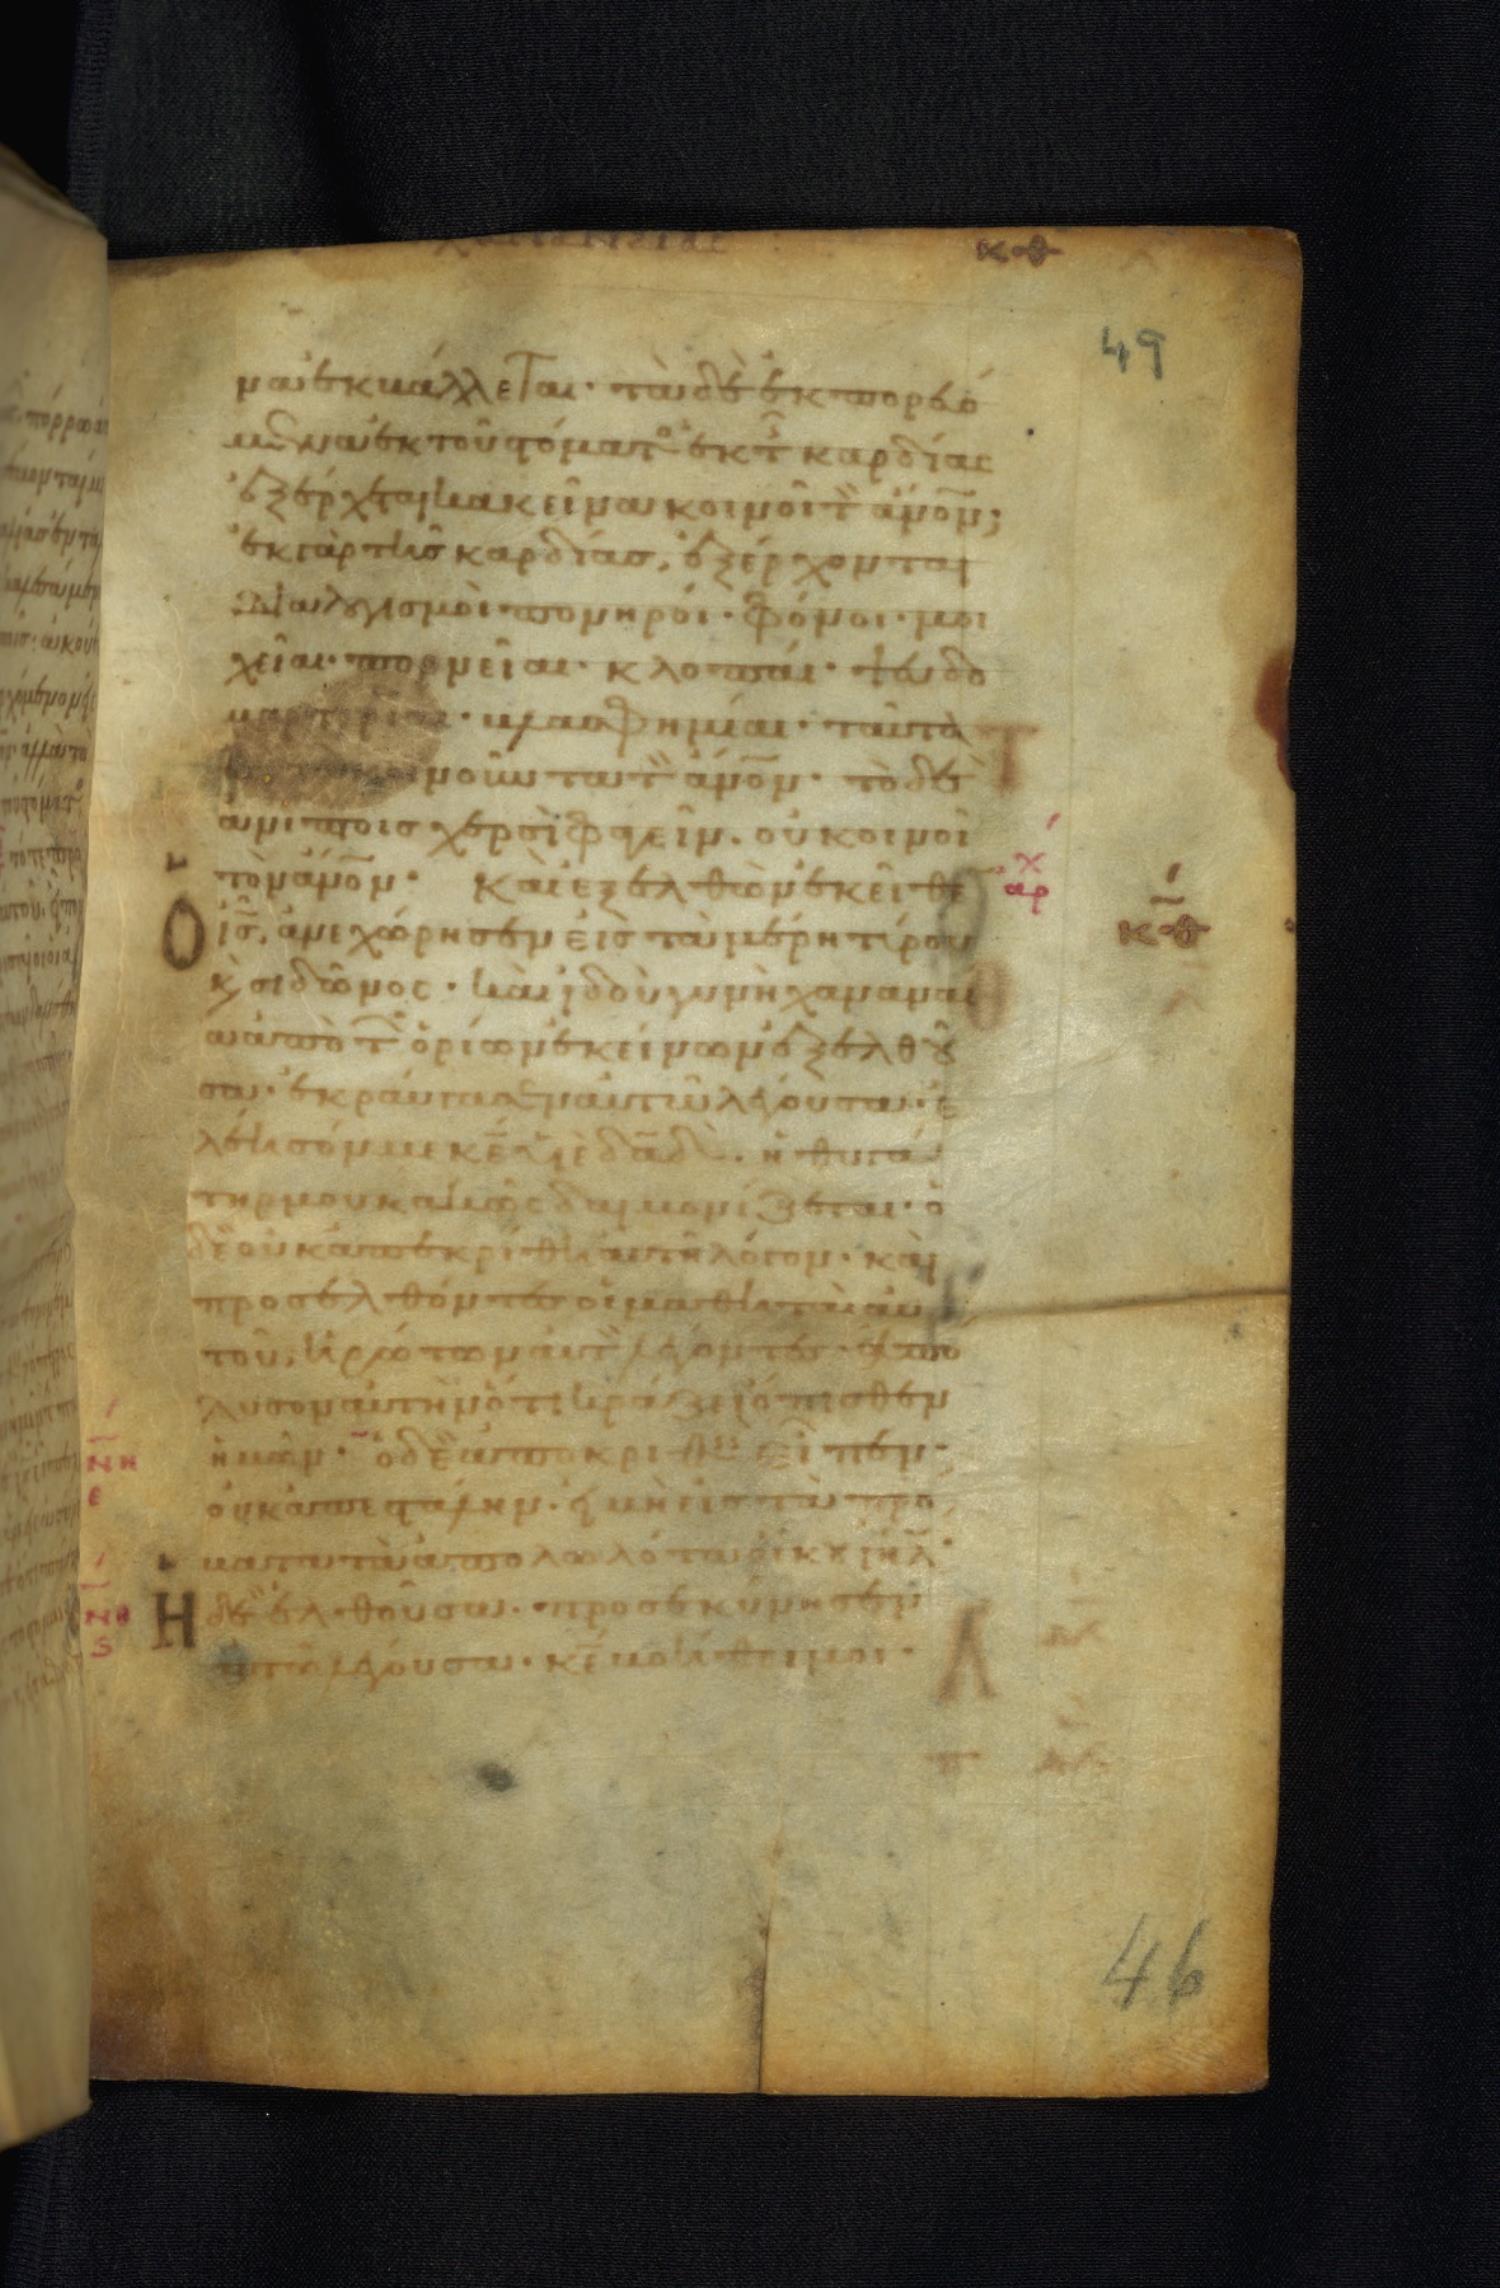 κθ
49
να ἐκβάλλεται· τὰ δὲ ἐκπορευό
μενα ἐκ τοῦ στόματο ἐκ τ καρδίας
ἐξέρχεται κακεῖνα κοινοῖ τ ἄνον;
ἐκ γὰρ τῆς καρδίας, ἐξέρχονται
διαλογισμοὶ πονηροί· φόνοι· μοι
χεῖαι· πορνεῖαι· κλοπαί· ψευδο
μαρτυρίαι· βλασφημίαι· ταῦτά
κοινοῦντα τ ἄνον· τὸ δὲ
ἀνίπτοις χερσὶ φαγεῖν. οὐ κοινοῖ
τὸν ἄνον· Καὶ ἐξελθὼν ἐκεῖθε
Ὁ ισ, ἀνεχώρησεν εἰς τὰ μέρη τύρου
κ σιδῶνος· καὶ ἰδοὺ γυνὴ χανααναί
α ἀπὸ τ ὁρίων ἐκείνων ἐξελθοῦ
σα· ἐκραύγασεν αὐτῶ λέγουσα· ἐ
λέησόν με κε υἱὲ δαδ. ἡ θυγά
τηρ μου κακῶς δαιμονίζεται· ὁ
δὲ οὐκ ἀπεκρίθη αὐτῆ λόγον· καὶ
προσελθόντες οἱ μαθηταὶ αὐ
τοῦ, ἠρώτων αὐτ λέγοντες· ἀπό
λυσον αὐτὴν ὅτι κράζει ὄπισθεν
ἡμῶν· ὁ δὲ ἀποκριθεὶς εἶπεν·
οὐκ ἀπεστάλην. εἰ μὴ εἰς τὰ πρό
βατα τὰ ἀπολωλότα οἴκου ιηλ·
Ἡ δὲ ἐλθοῦσα· προσεκύνησεν
αὐτῶ λέγουσα· κε βοήθει μοι·
αρχ
κθ
νη
ε
νθ
ς
46